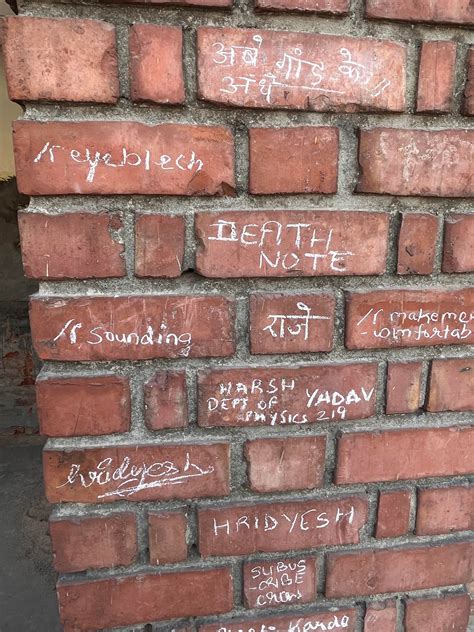 अबे गांड के
अंधे //
/r eyeblech
DEATH
NOTE
/r sounding
राजे
/r makeme
-comfortab
HARSH YADAV
DEPT OF
PHYSICS 219
Hridyesh
HRIDYESH
SUBUS
-CRIBE
Kardo